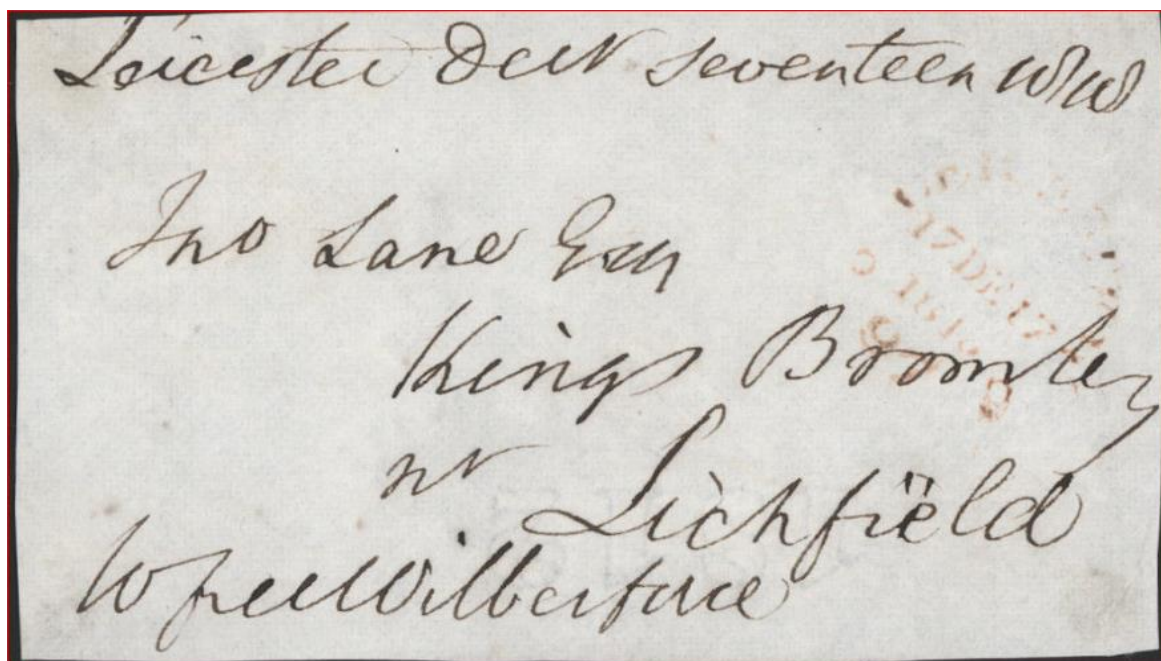 Leicester Decr seventeen WW
17 DE 17
Jno Lane Esqr
Kings Bromley
nr Lichfield
W free Wilberforce